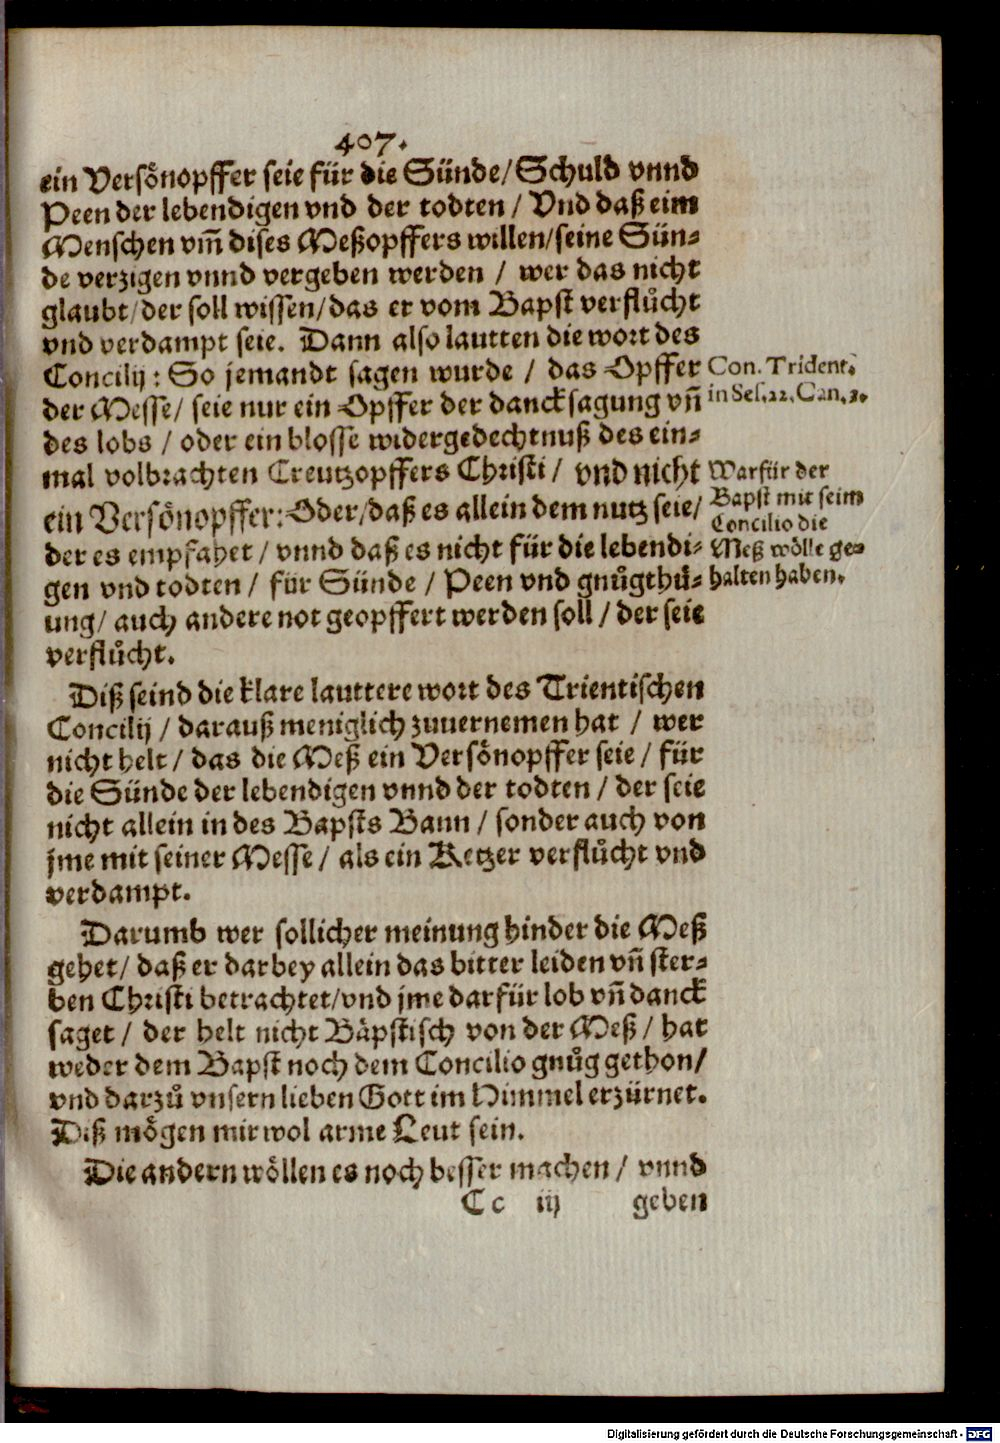 407.
ein Versönopffer seie für die Sünde/ Schuld vnnd
Peen der lebendigen vnd der todten / Vnd daß eim
Menschen vm̃ dises Meßopffers willen/ seine Sün-
de verzigen vnnd vergeben werden / wer das nicht
glaubt/ der soll wissen/ das er vom Bapst verflůcht
vnd verdampt seie. Dann also lautten die wort des
Concilij: So jemandt sagen wurde / das Opffer
der Messe/ seie nur ein Opffer der dancksagung vñ
des lobs / oder ein blosse widergedechtnuß des ein-
mal volbrachten Creutzopffers Christi/ vnd nicht
ein Versönopffer: Oder/ daß es allein dem nutz seie/
der es empfahet/ vnnd daß es nicht für die lebendi-
gen vnd todten/ für Sünde / Peen vnd gnůgthů-
ung/ auch andere not geopffert werden soll / der seie
verflůcht.
Con. Trident.
in Ses. 22. Can. 3.
Warfür der
Bapst mit seim
Concilio die
Meß wölle ge-
halten haben.
Diß seind die klare lauttere wort des Trientischen
Concilij / darauß meniglich zuuernemen hat / wer
nicht helt/ das die Meß ein Versönopffer seie/ für
die Sünde der lebendigen vnnd der todten/ der seie
nicht allein in des Bapsts Bann / sonder auch von
jme mit seiner Messe/ als ein Ketzer verflůcht vnd
verdampt.
Darumb wer sollicher meinung hinder die Meß
gehet/ daß er darbey allein das bitter leiden vñ ster-
ben Christi betrachtet/ vnd jme darfür lob vñ danck
saget / der helt nicht Bäpstisch von der Meß/ hat
weder dem Bapst noch dem Concilio gnůg gethon/
vnd darzů vnsern lieben Gott im Himmel erzürnet.
Diß mögen mir wol arme Leut sein.
Die andern wöllen es noch besser machen / vnnd
Cc iij geben
Digitalisierung gefördert durch die Deutsche Forschungsgemeinschaft - DFG